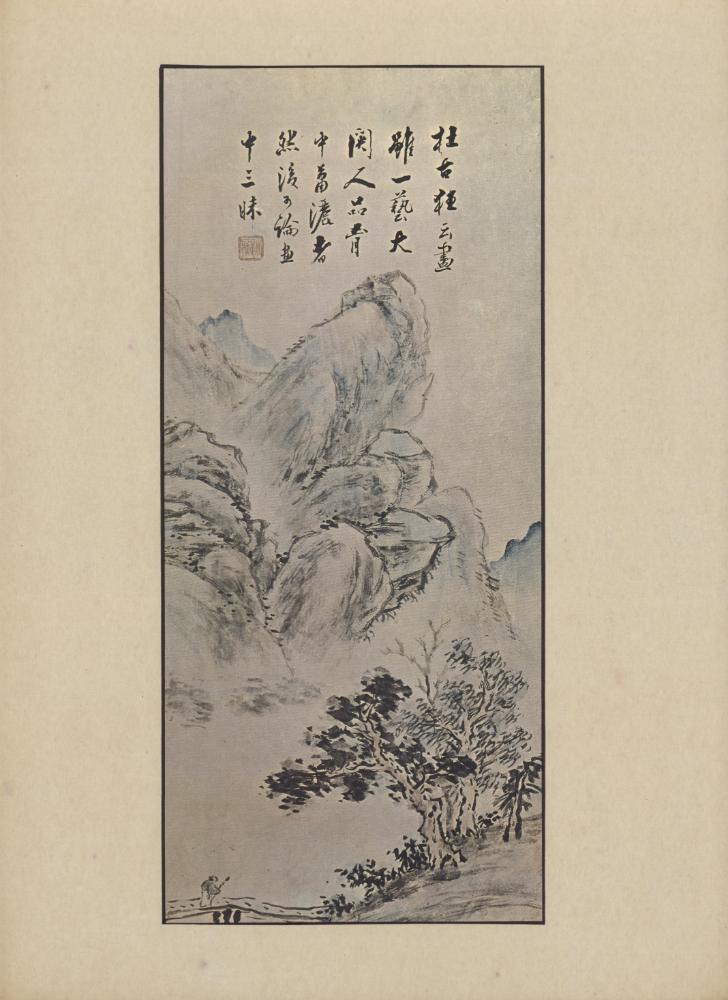 杜古狂云畫
雖一藝大
関人品胷
中蕭灑者
然後可論畫
中三昧